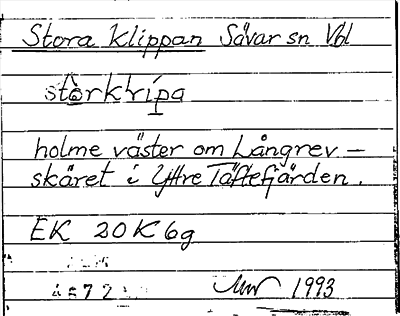 Stora Klippan Sävar sn Vbl
holme väster om Långrev–
skäret i Yttre Täftefjärden.
EK 20K6g
1993